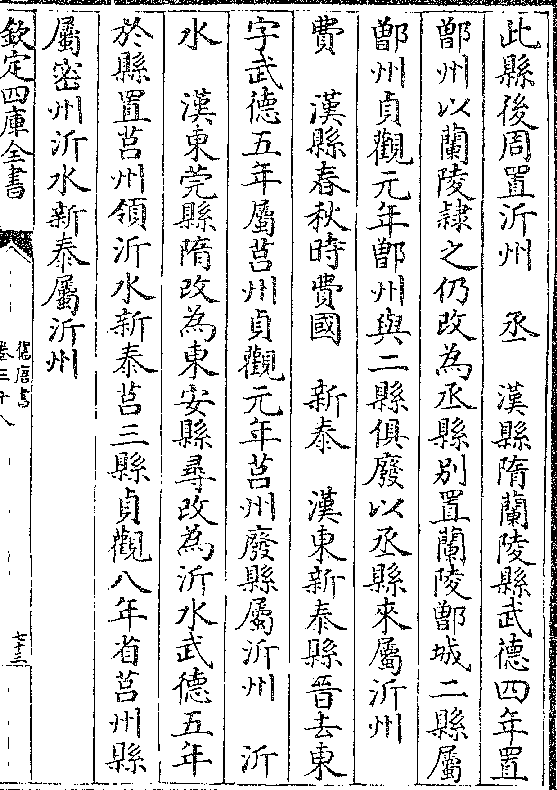 此縣後周置沂州　丞　漢縣隋蘭陵縣武德四年置
鄫州以蘭陵隸之仍改為丞縣別置蘭陵鄫城二縣屬
鄫州貞觀元年鄫州與二縣俱廢以丞縣來屬沂州
費　漢縣春秋時費國　新泰　漢東新泰縣晉去東
字武德五年屬莒州貞觀元年莒州廢縣屬沂州　沂
水　漢東莞縣隋改為東安縣尋改為沂水武德五年
於縣置莒州領沂水新泰莒三縣貞觀八年省莒州縣
屬密州沂水新泰屬沂州
欽定四庫全書
舊唐書
卷三十八
七十三